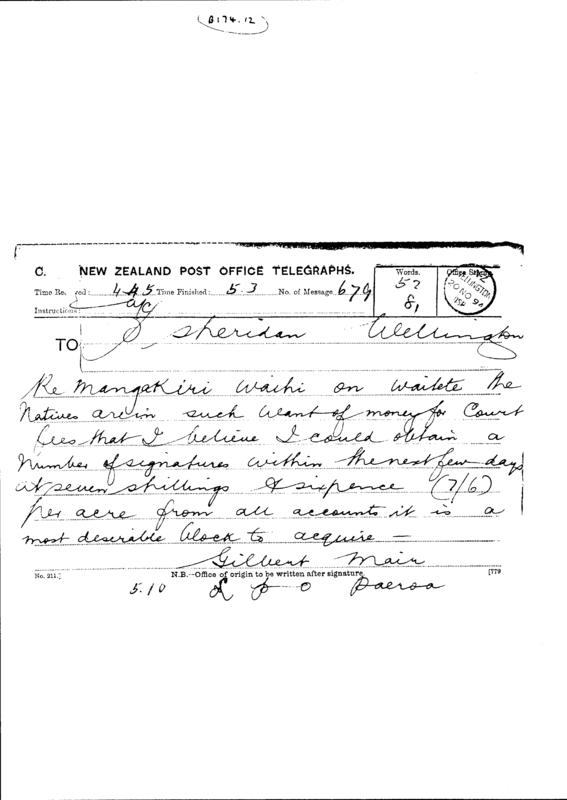 B174.12
C. NEW ZEALAND POST OFFICE TELEGRAPHS.
Time Re. ved: 4 45 Time Finished: 5.3 No. of Message 679
Words. 52
8,
Office Stamp
WELLINGTON
20 NO 94
Instructions:
TO P Sheridan Wellington
Re Mangakiri Waihi on Waitete the
Natives are in such want of money for Court
fees that I believe I could obtain a
number of signatures within the next few days
at seven shillings & sixpence (7/6)
per acre from all accounts it is a
most deserable block to acquire —
Gilbert Mair
No. 211.] N.B.—Office of origin to be written after signature. [779
5.10 L P O Paeroa